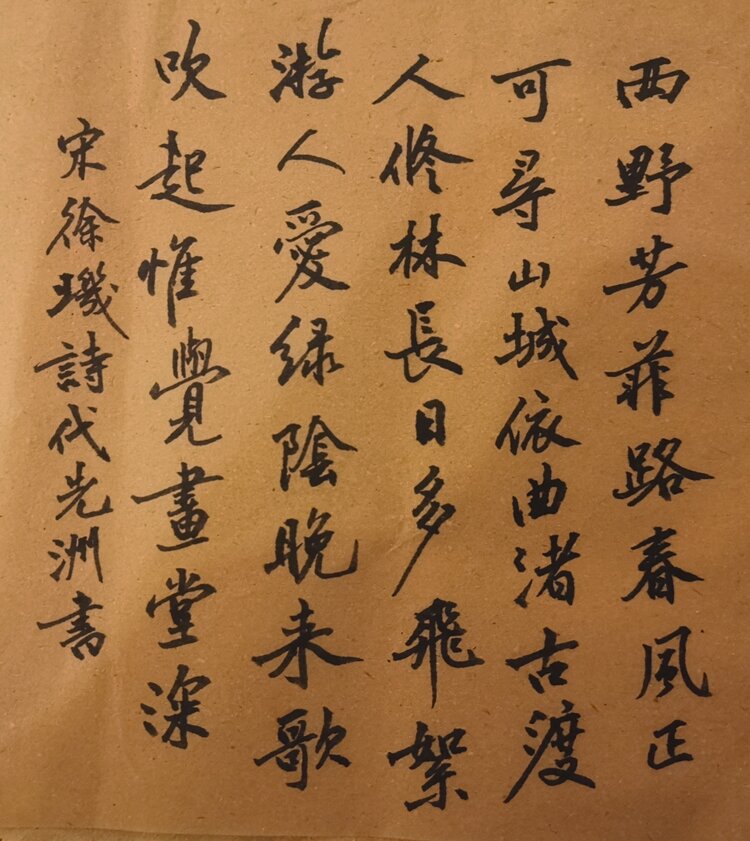 西野芳菲路春風正
可尋山城依曲渚古渡
人修林長日多飛絮
游人愛緑陰晚来歌
吹起惟覺畫堂深
宋徐璣詩代先洲書